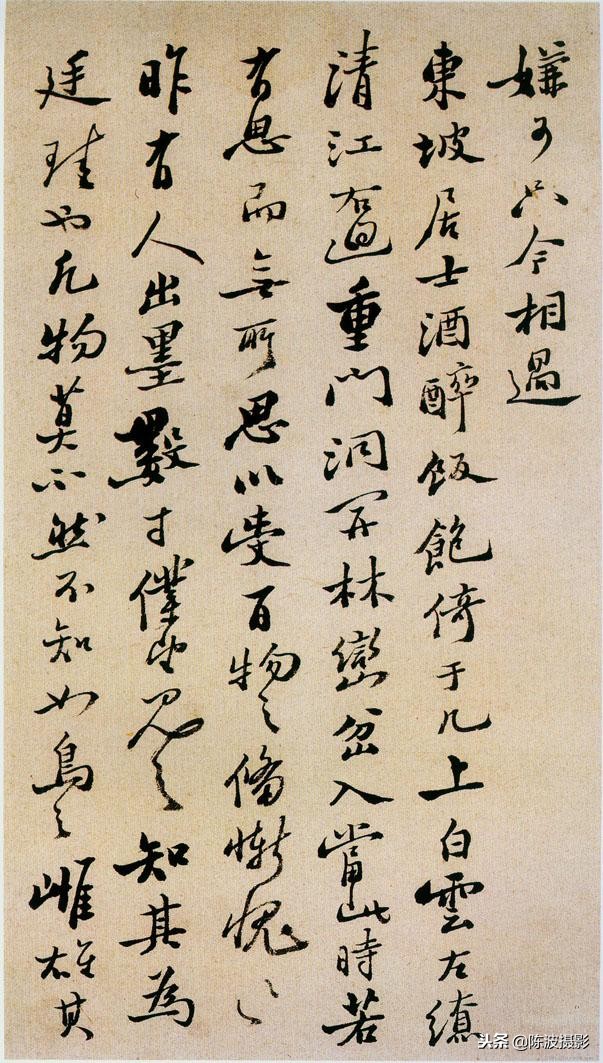 嫌可只今相過
東坡居士酒醉飯飽倚于几上白雲左繚
清江右迴重門洞開林巒坌入當此時若
有思而無所思以受百物之備慚愧〻〻
昨有人出墨數寸僕望見之知其為
廷珪也凡物莫不然不知如鳥之雌雄其
头条 @陈波摄影